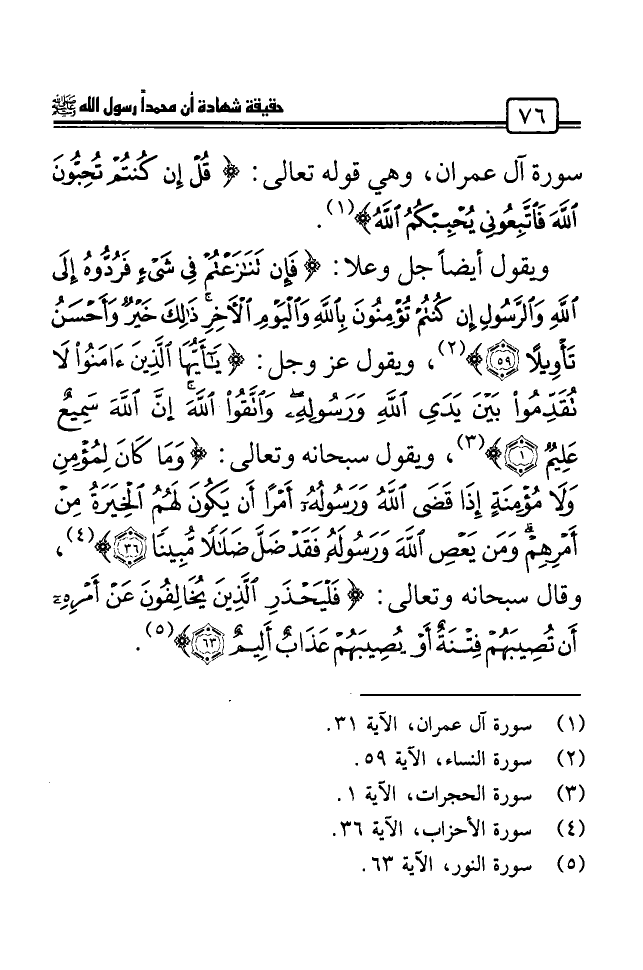 ٧٦ حقيقة شهادة أن محمداً رسول الله ﷺ
سورة آل عمران، وهي قوله تعالى: ﴿ قُلْ إِن كُنتُمْ تُحِبُّونَ
ٱللَّهَ فَٱتَّبِعُونِي يُحْبِبْكُمُ ٱللَّهُ ﴾(١).
ويقول أيضاً جل وعلا: ﴿ فَإِن تَنَٰزَعْتُمْ فِي شَيْءٍ فَرُدُّوهُ إِلَى
ٱللَّهِ وَٱلرَّسُولِ إِن كُنتُمْ تُؤْمِنُونَ بِٱللَّهِ وَٱلْيَوْمِ ٱلْأَخِرِ ۚ ذَٰلِكَ خَيْرٌ وَأَحْسَنُ
تَأْوِيلًا ٥٩ ﴾(٢)، ويقول عز وجل: ﴿ يَٰٓأَيُّهَا ٱلَّذِينَ ءَامَنُوا۟ لَا
تُقَدِّمُوا۟ بَيْنَ يَدَيِ ٱللَّهِ وَرَسُولِهِۦ ۖ وَٱتَّقُوا۟ ٱللَّهَ ۚ إِنَّ ٱللَّهَ سَمِيعٌ
عَلِيمٌ ١ ﴾(٣)، ويقول سبحانه وتعالى: ﴿ وَمَا كَانَ لِمُؤْمِنٍ
وَلَا مُؤْمِنَةٍ إِذَا قَضَى ٱللَّهُ وَرَسُولُهُۥٓ أَمْرًا أَن يَكُونَ لَهُمُ ٱلْخِيَرَةُ مِنْ
أَمْرِهِمْ ۗ وَمَن يَعْصِ ٱللَّهَ وَرَسُولَهُۥ فَقَدْ ضَلَّ ضَلَٰلًا مُّبِينًا ٣٦ ﴾(٤)،
وقال سبحانه وتعالى: ﴿ فَلْيَحْذَرِ ٱلَّذِينَ يُخَالِفُونَ عَنْ أَمْرِهِۦٓ
أَن تُصِيبَهُمْ فِتْنَةٌ أَوْ يُصِيبَهُمْ عَذَابٌ أَلِيمٌ ٦٣ ﴾(٥).
(١) سورة آل عمران، الآية ٣١.
(٢) سورة النساء، الآية ٥٩.
(٣) سورة الحجرات، الآية ١.
(٤) سورة الأحزاب، الآية ٣٦.
(٥) سورة النور، الآية ٦٣.